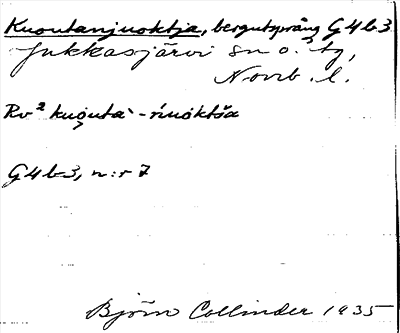 Kuoutanjuoktja, bergutsprång G4b3
Jukkasjärvi sn o. tg,
Norrb. l.
Rv² kuou̯ta`-ńuoktša
G4b3, n:r 7
Björn Collinder 1935